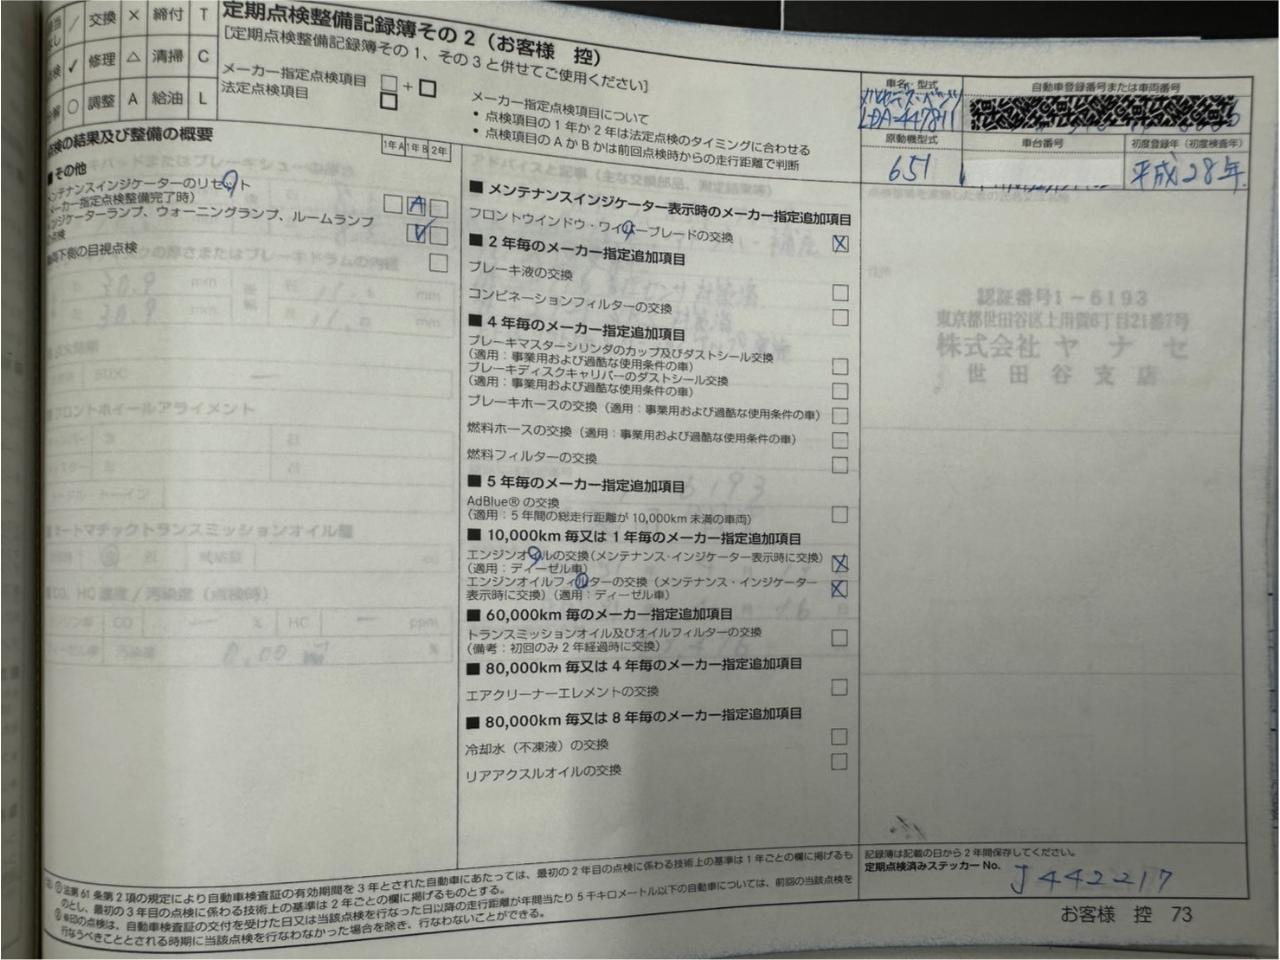 交換 × 締付 T
修理 △ 清掃 C
調整 A 給油 L
定期点検整備記録簿その2（お客様 控）
[定期点検整備記録簿その1、その3と併せてご使用ください]
メーカー指定点検項目 □ + □
法定点検項目 □
メーカー指定点検項目について
• 点検項目の1年か2年は法定点検のタイミングに合わせる
• 点検項目のAかBかは前回点検時からの走行距離で判断
車名・型式
メルセデス・ベンツ
LDA-447811
自動車登録番号または車両番号
原動機型式
651
車台番号
初度登録年（初度検査年）
平成28年
点検の結果及び整備の概要
1年A 1年B 2年
■ その他
メンテナンスインジケーターのリセット
メーカー指定点検整備完了時）
A
インジケーターランプ、ウォーニングランプ、ルームランプ
点検
車両下側の目視点検
■ メンテナンスインジケーター表示時のメーカー指定追加項目
フロントウインドウ・ワイパーブレードの交換 ×
■ 2年毎のメーカー指定追加項目
ブレーキ液の交換
コンビネーションフィルターの交換
■ 4年毎のメーカー指定追加項目
ブレーキマスターシリンダのカップ及びダストシール交換
（適用：事業用および過酷な使用条件の車）
ブレーキディスクキャリパーのダストシール交換
（適用：事業用および過酷な使用条件の車）
ブレーキホースの交換（適用：事業用および過酷な使用条件の車）
燃料ホースの交換（適用：事業用および過酷な使用条件の車）
燃料フィルターの交換
■ 5年毎のメーカー指定追加項目
AdBlue®の交換
（適用：5年間の総走行距離が10,000km未満の車両）
■ 10,000km毎又は1年毎のメーカー指定追加項目
エンジンオイルの交換（メンテナンス・インジケーター表示時に交換）
（適用：ディーゼル車） ×
エンジンオイルフィルターの交換（メンテナンス・インジケーター
表示時に交換）（適用：ディーゼル車） ×
■ 60,000km毎のメーカー指定追加項目
トランスミッションオイル及びオイルフィルターの交換
（備考：初回のみ2年経過時に交換）
■ 80,000km毎又は4年毎のメーカー指定追加項目
エアクリーナーエレメントの交換
■ 80,000km毎又は8年毎のメーカー指定追加項目
冷却水（不凍液）の交換
リアアクスルオイルの交換
認証番号1-6193
東京都世田谷区上用賀6丁目21番7号
株式会社ヤナセ
世田谷支店
記録簿は記載の日から2年間保存してください。
定期点検済みステッカーNo.
J442217
① 法第61条第2項の規定により自動車検査証の有効期間を3年とされた自動車にあたっては、最初の2年目の点検に係わる技術上の基準は1年ごとの欄に掲げるも
のとし、最初の3年目の点検に係わる技術上の基準は2年ごとの欄に掲げるものとする。
② ※印の点検は、自動車検査証の交付を受けた日又は当該点検を行なった日以降の走行距離が年間当たり5千キロメートル以下の自動車については、前回の当該点検を
行なうべきこととされる時期に当該点検を行なわなかった場合を除き、行なわないことができる。
お客様 控 73